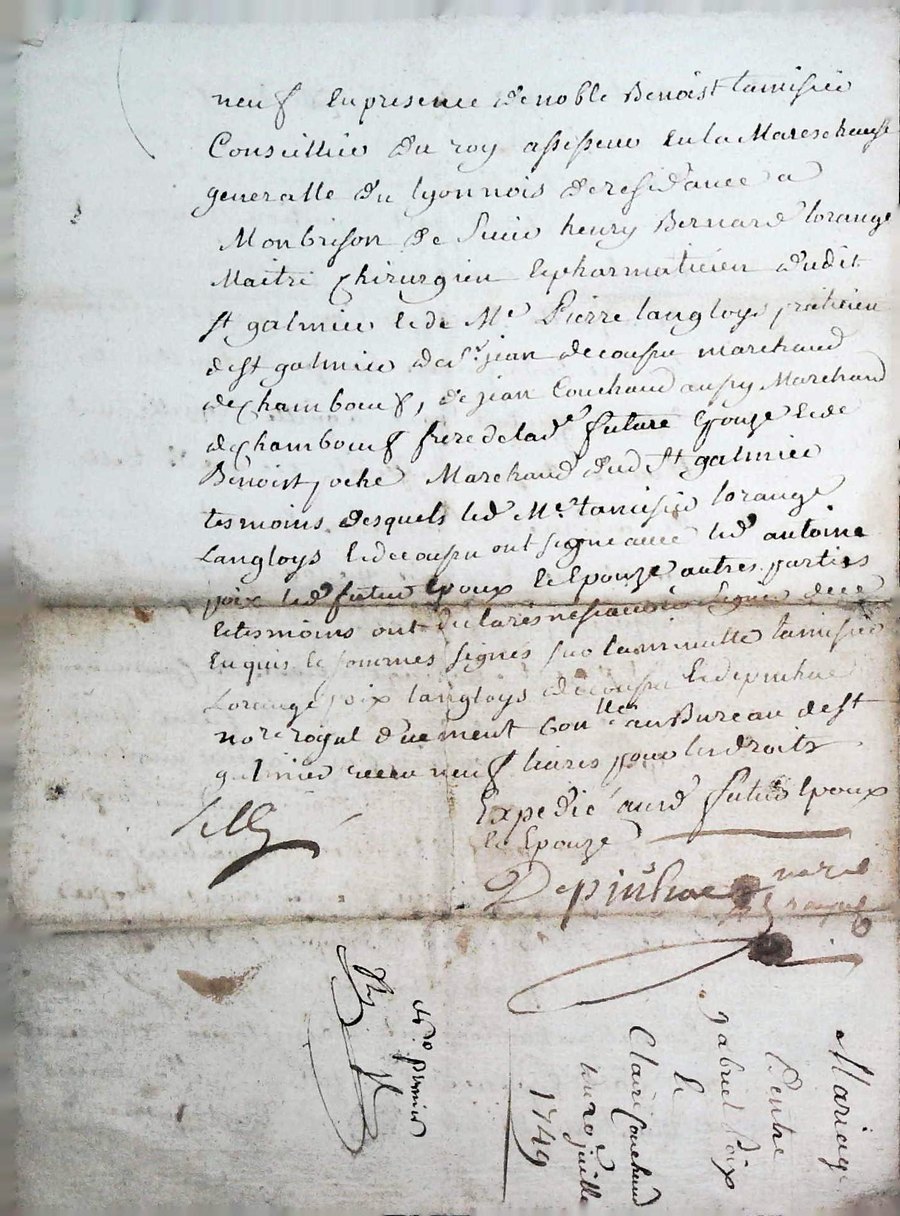 neuf En presence de noble Benoist tamisié
Conseillier du roy assesseur En la Mareschaussé
generalle du lyonnois de residance a
Monbrison de Sieur henry Bernard lorange
Maitre Chirurgien Et pharmatiéien dudit
st galmier et de Me Pierre langloys praticien
de st galmier de sr jean decousu marchand
de Chambœuf, de jean Couchaud aussy Marchand
de Chambœuf frere de lade future Epouze et de
Benoist Marchand dud st galmier
tesmoins desquels led Me tamisié lorange
Langloys et decousu ont signé avec led antoine
poix led futur Epoux et Epouze autres parties
et tesmoins ont declarés ne scavoir signer de ce
Enquis et sommés signés sur la minutte tamisié
Lorange poix langloys decousu et depinhac
nore royal duement Conllé au Bureau de st
galmier receu neuf livres pour les droits
Expedié aud futur Epoux
et Epouze
Depinhac nore
royal
Mariage
Dentre
gabriel Poix
Et
Claire Couchaud
du 20 juillet
1749
premier